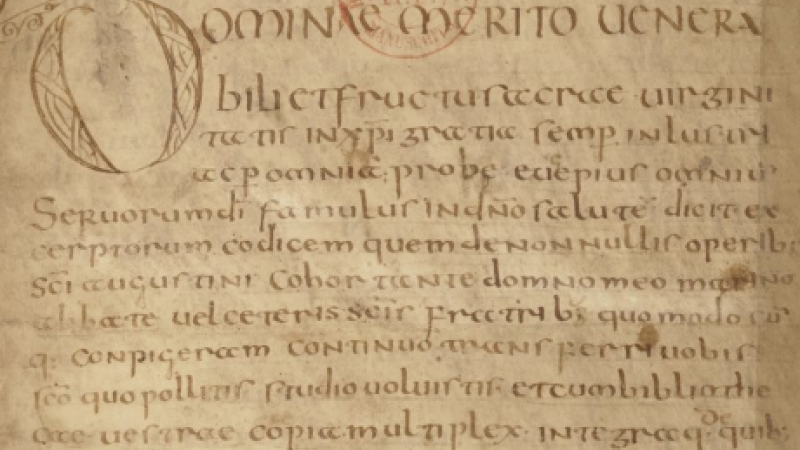 DOMINAE MERITO UENERA
bili et fructu sacrae uirgini
tatis in xp̄i gratia semp inlustri
ac p omnia probę eugepius omniū
Seruorum dī famulus in dn̄o salutē dicit ex
cerptorum codicem quem denonnullis operib;
sc̄i augustini cohortante domno meo marino
abbate uel ceteris sc̄is fratrib; quomodo cū
q· conpigeram continuo transferri uobis
sc̄o quo pollitis studio uoluistis· et cum bibliothe
cae uestrae copia multiplex· integra q· de quib;